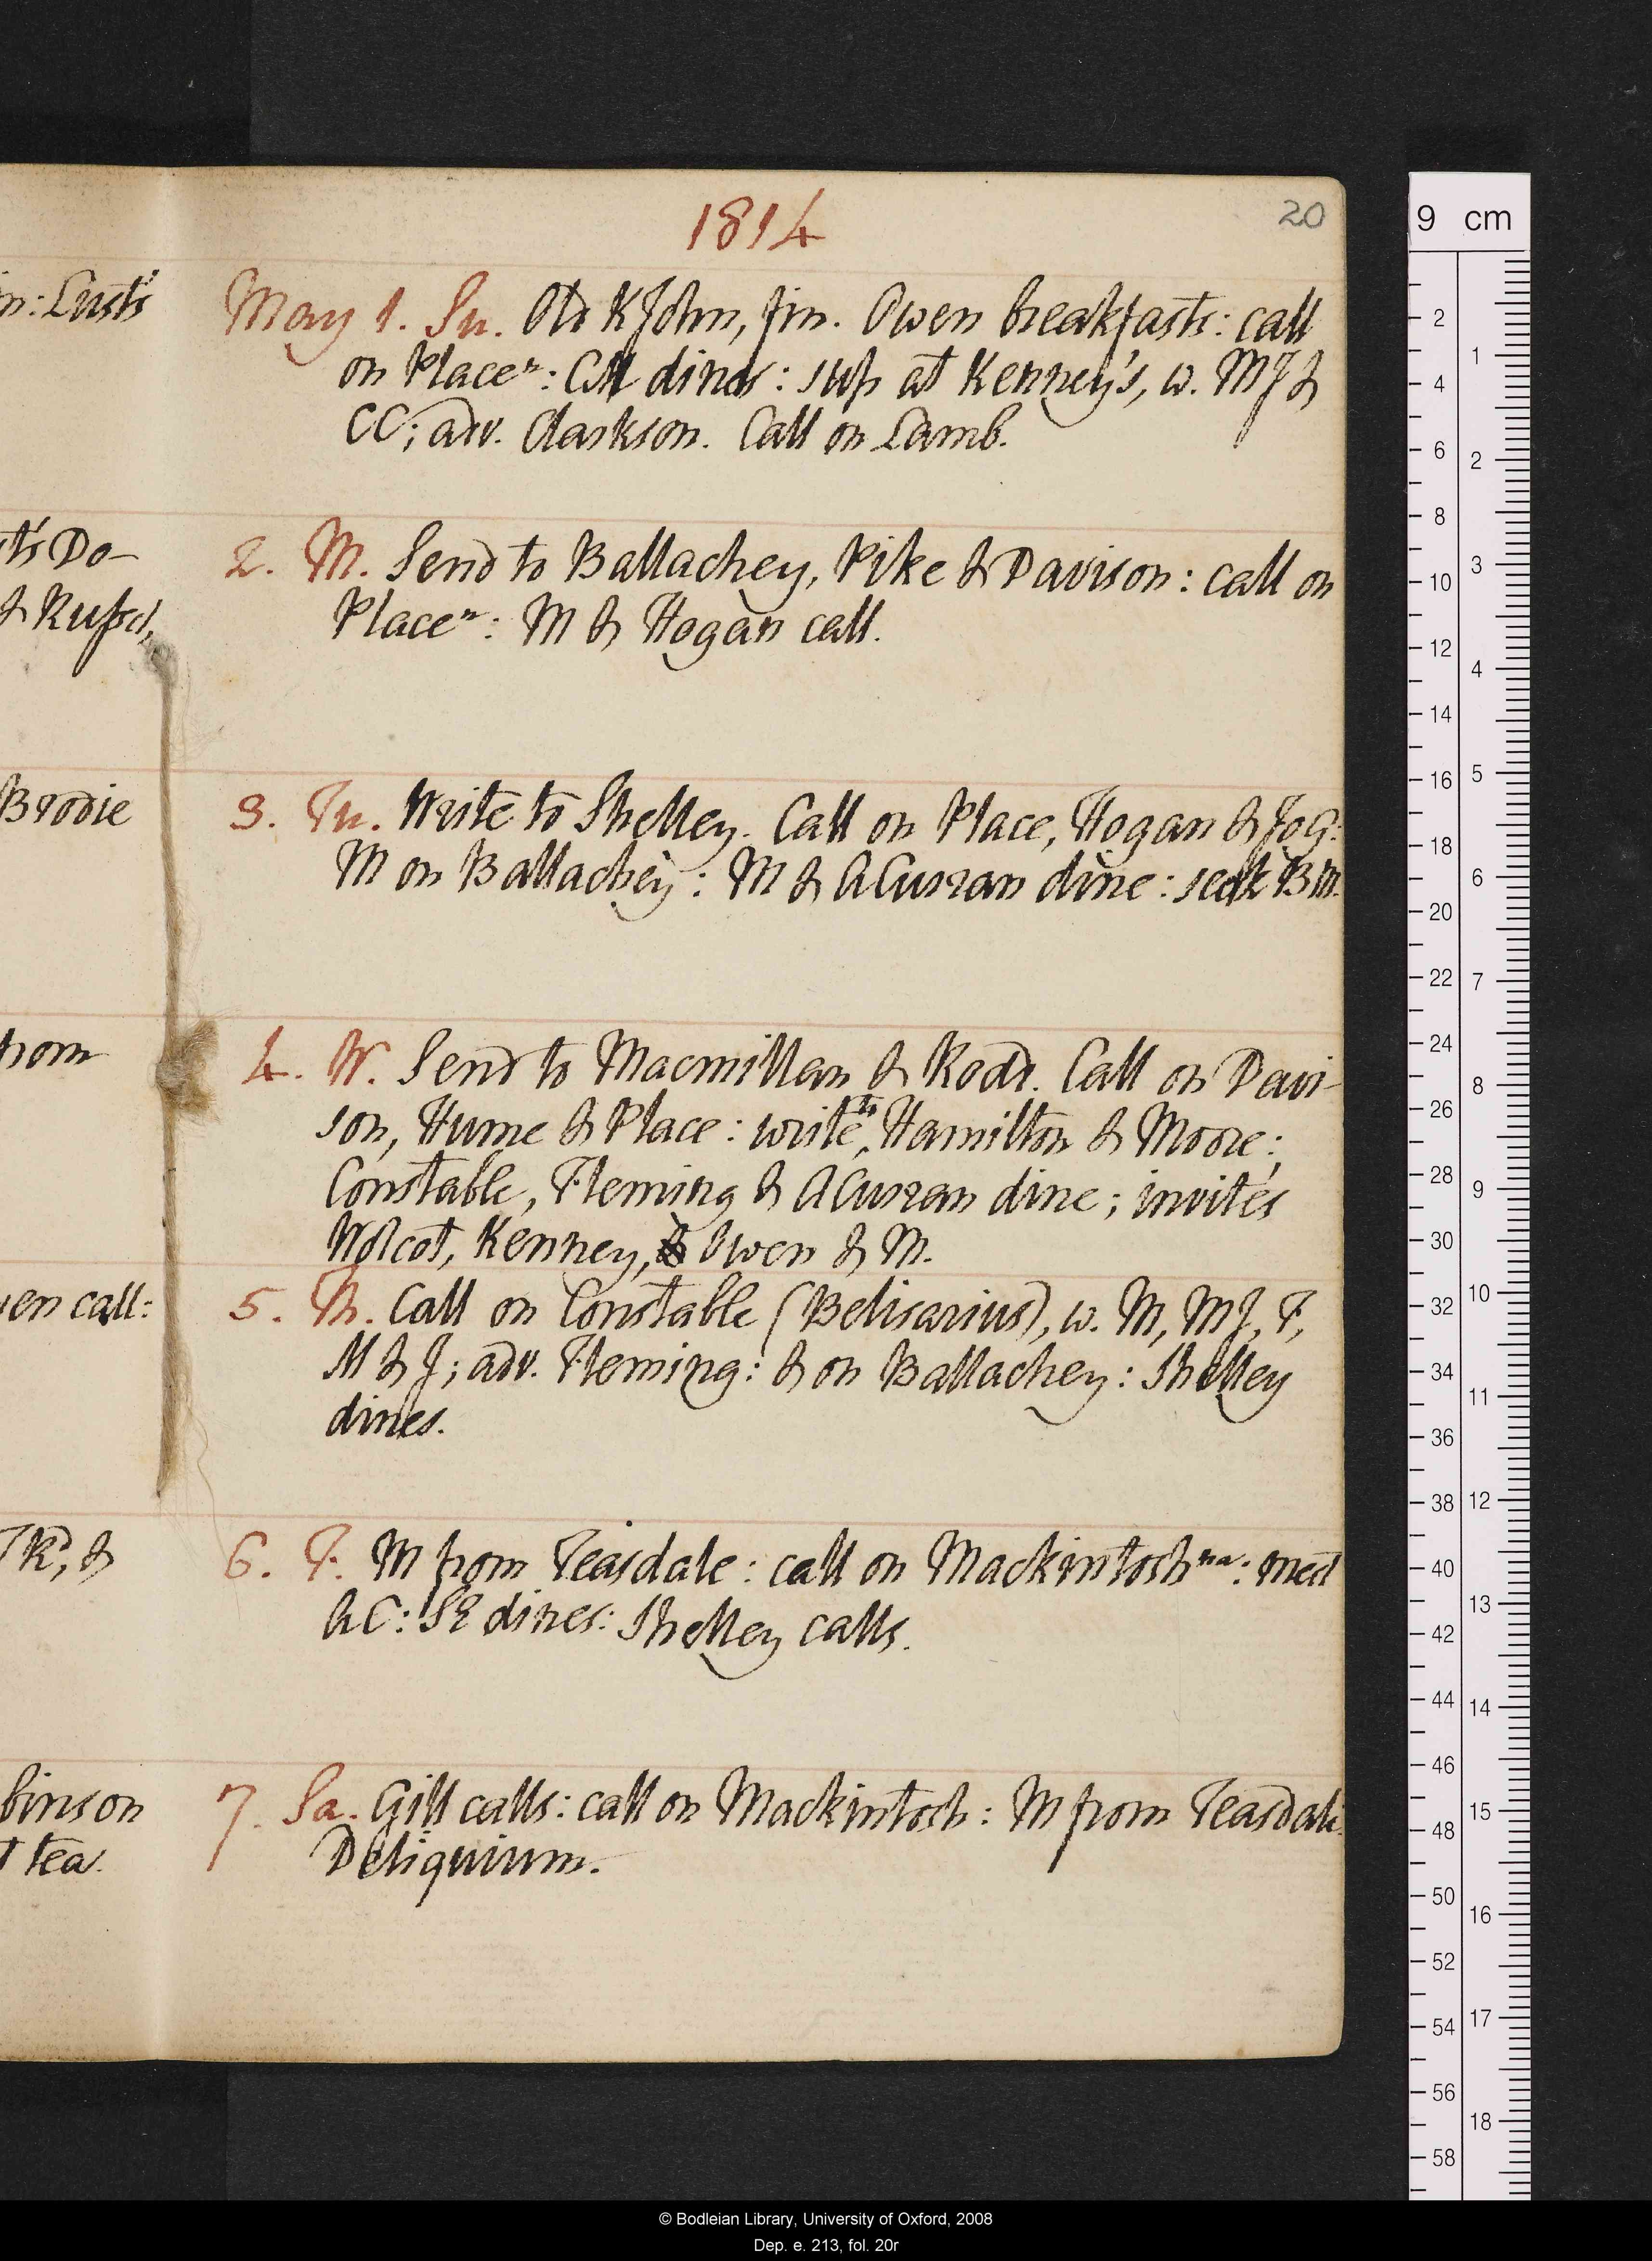 1814
20
n: Lust's
May 1. Su. Old K John, fin. Owen breakfasts: call
on Place n: CM dines: sup at Kenney's, w. MJ &
CC; adv. Clarkson. Call on Lamb.
t's Do-
2. M. Send to Ballachey, Pike & Davison: call on
& Russel,
Place n: M & Hogan call.
Brodie
3. Tu. Write to Shelley. Call on Place, Hogan & Jo G:
M on Ballachey: M & A Curran dine: seek BM.
from
4. W. Send to Macmillan & Rodd. Call on Davi-
son, Hume & Place: write to Hamilton & Moore;
Constable, Fleming & A Curran dine; invités
Wolcot, Kenney, Owen & M.
en call:
5. Th. Call on Constable (Belisarius), w. M, MJ, F,
M & J; adv. Fleming: & on Ballachey: Shelley
dines.
TKd, &
6. F. M from Teasdale: call on Mackintosh na: meet
AC: SE dines: Shelley calls.
binson
7. Sa. Gill calls: call on Mackintosh: M from Teasdale.
t tea.
Deliquium.
9 cm
2
4
6
8
10
12
14
16
18
20
22
24
26
28
30
32
34
36
38
40
42
44
46
48
50
52
54
56
58
1
2
3
4
5
6
7
8
9
10
11
12
13
14
15
16
17
18
© Bodleian Library, University of Oxford, 2008
Dep. e. 213, fol. 20r